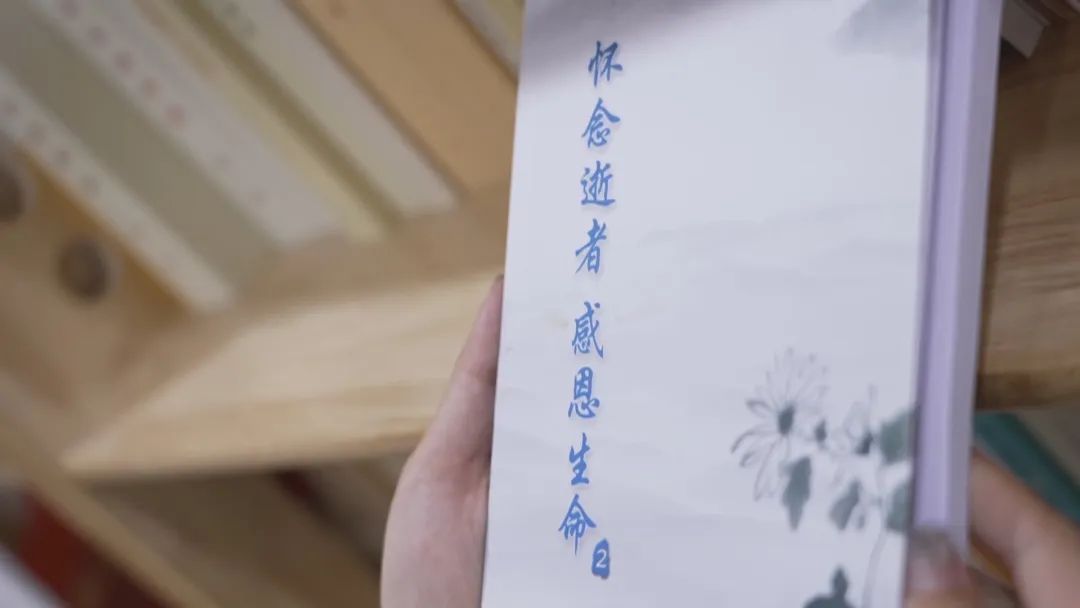 怀念逝者 感恩生命 2